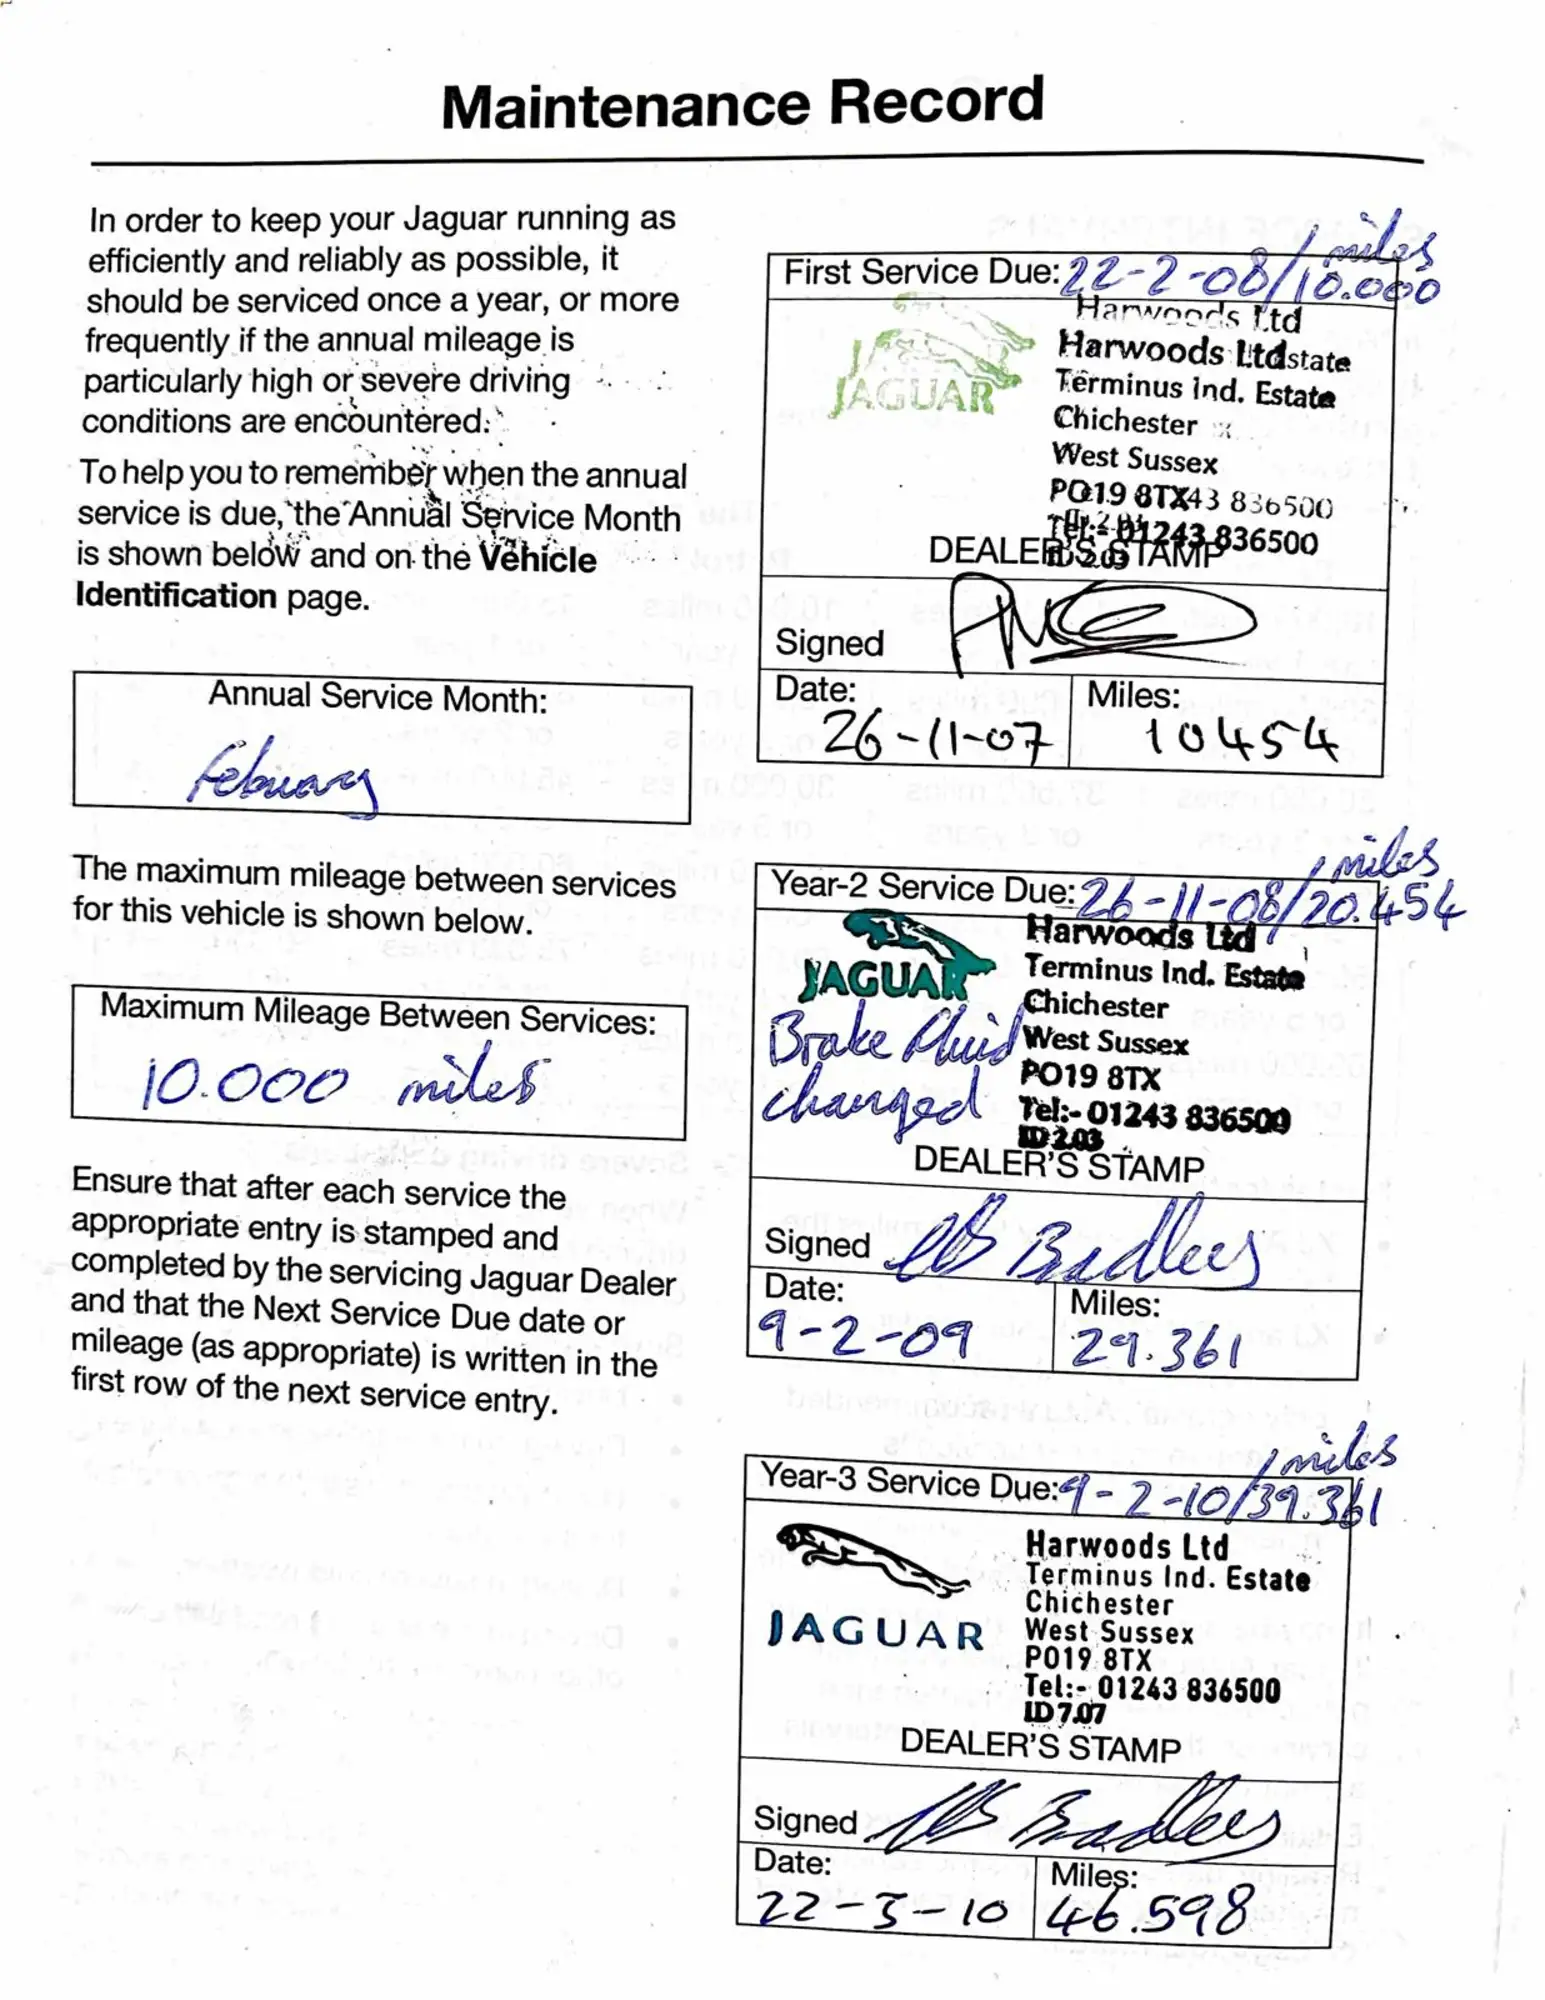 Maintenance Record
In order to keep your Jaguar running as
efficiently and reliably as possible, it
should be serviced once a year, or more
frequently if the annual mileage is
particularly high or severe driving
conditions are encountered.
To help you to remember when the annual
service is due, the Annual Service Month
is shown below and on the Vehicle
Identification page.
Annual Service Month:
February
The maximum mileage between services
for this vehicle is shown below.
Maximum Mileage Between Services:
10.000 miles
Ensure that after each service the
appropriate entry is stamped and
completed by the servicing Jaguar Dealer
and that the Next Service Due date or
mileage (as appropriate) is written in the
first row of the next service entry.
First Service Due: 22-2-08/10.000 miles
JAGUAR
JAGUAR
Harwoods Ltd
Harwoods Ltd state
Terminus Ind. Estate
Chichester
West Sussex
PO19 8TX 43 836500
Tel:- 01243 836500
ID 2.03
DEALER'S STAMP
Signed
Date: Miles:
26-11-07 10454
Year-2 Service Due: 26-11-08/20.454 miles
JAGUAR
Brake Fluid
changed
Harwoods Ltd
Terminus Ind. Estate
Chichester
West Sussex
PO19 8TX
Tel:- 01243 836500
ID 2.03
DEALER'S STAMP
Signed
Date: Miles:
9-2-09 29.361
Year-3 Service Due: 9-2-10/39.361 miles
JAGUAR
Harwoods Ltd
Terminus Ind. Estate
Chichester
West Sussex
PO19 8TX
Tel:- 01243 836500
ID 7.07
DEALER'S STAMP
Signed
Date: Miles:
22-3-10 46.598